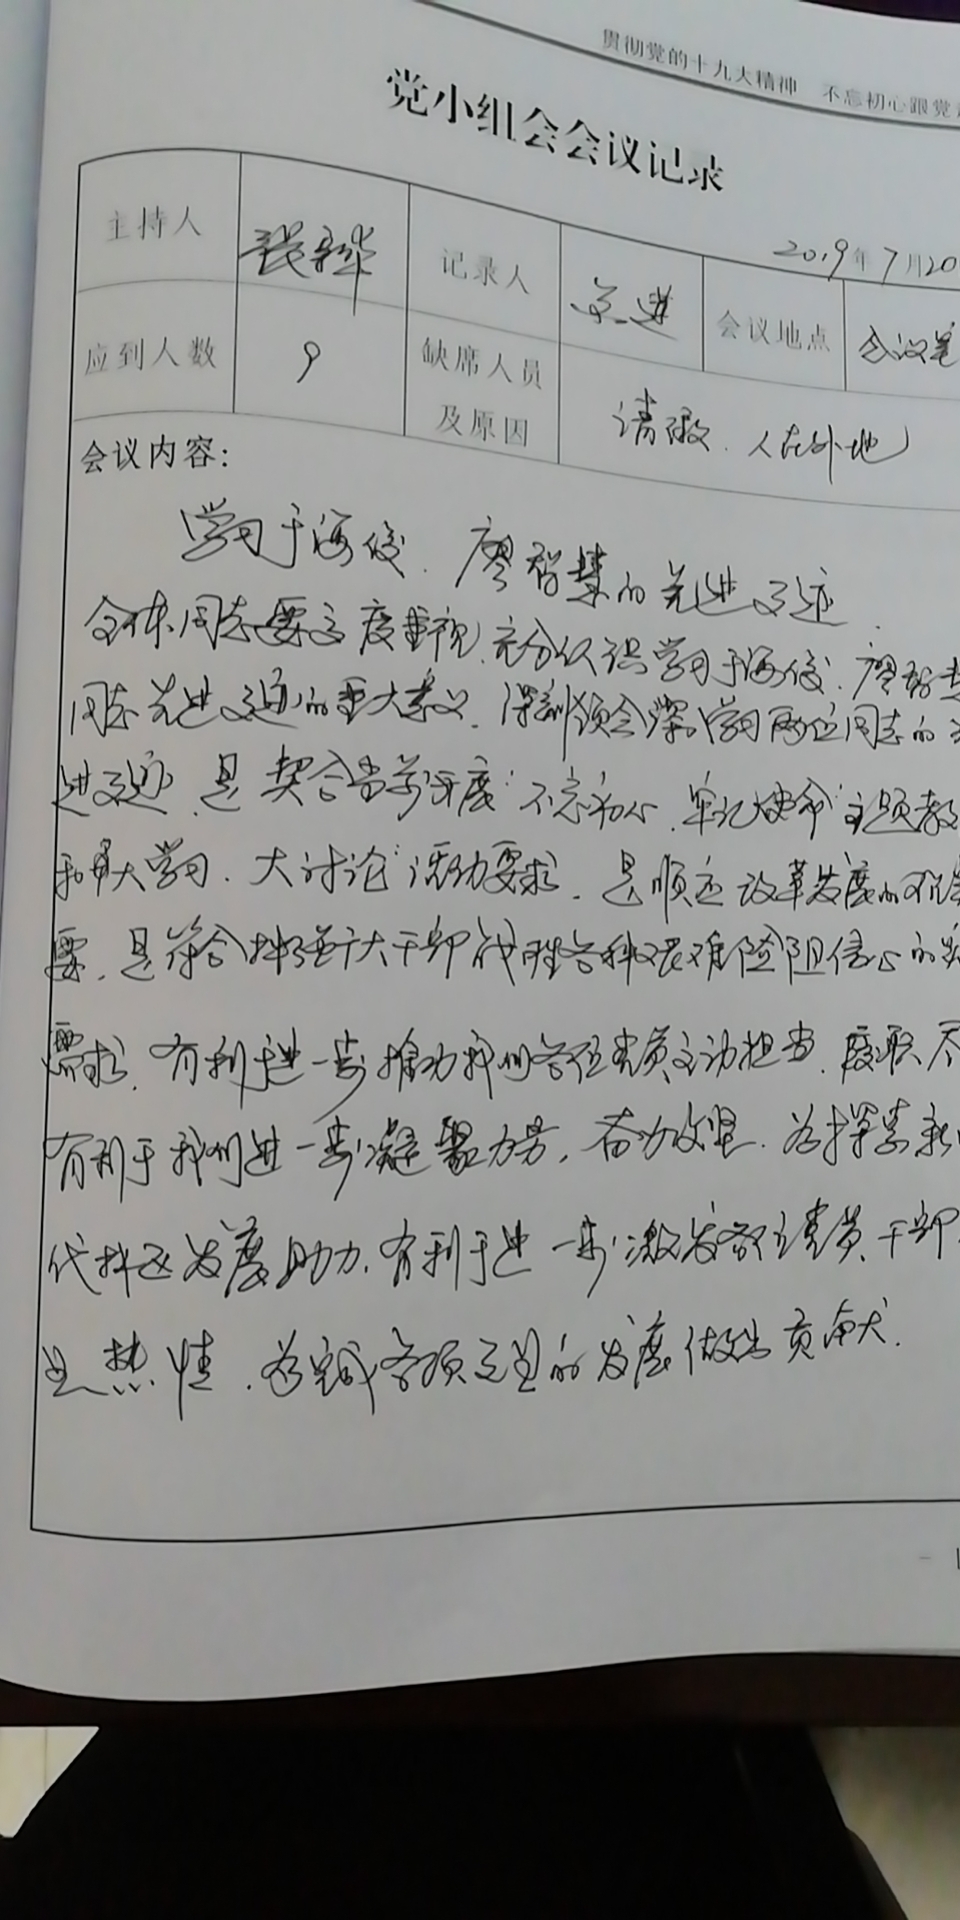 贯彻党的十九大精神 不忘初心跟党
党小组会会议记录
2019年7月20
主持人 记录人 会议地点 会议室
应到人数 9 缺席人员及原因 请假、人在外地
会议内容：
学习于海俊、廖智慧的先进事迹.
全体同志要高度重视,充分认识学习于海俊、廖智慧
同志先进事迹的重大意义,深刻领会学习两位同志的先
进事迹,是契合当前开展"不忘初心、牢记使命"主题教
和"大学习、大讨论"活动要求,是顺应改革发展的
要,是符合广大干部战胜各种艰难险阻信心的
需求,有利于进一步推动我们各位党员主动担当、履职尽
有利于我们进一步凝聚力量,奋力攻坚,为探索新
代林区发展助力,有利于进一步激发各位党员干部
热情,为完成各项的发展做出贡献.